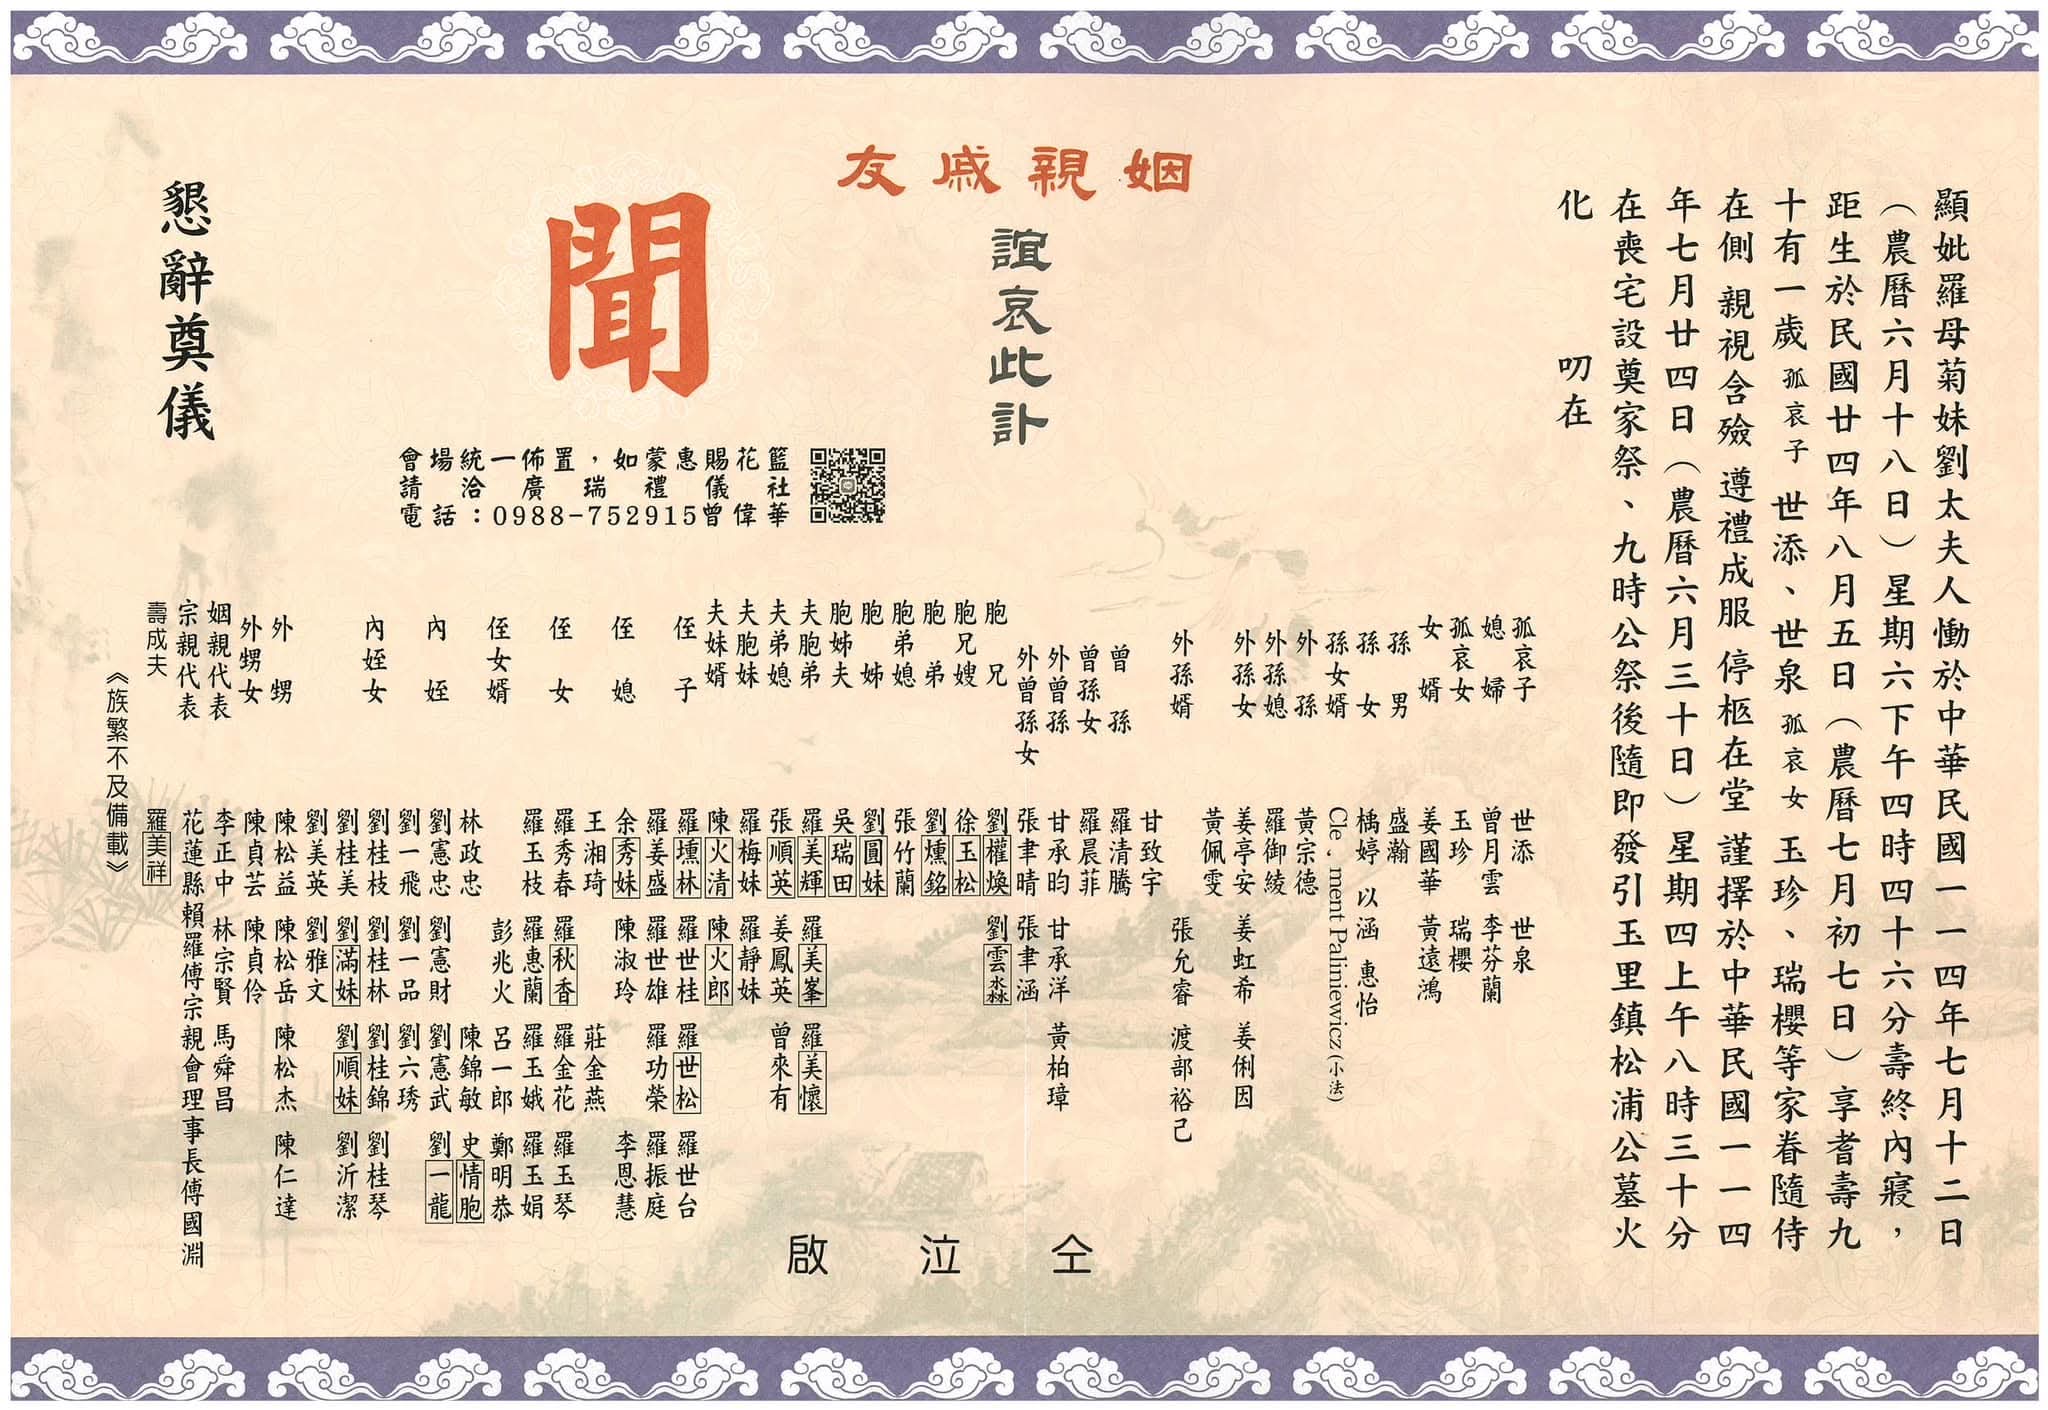 顯妣羅母菊妹劉太夫人慟於中華民國一一四年七月十二日
（農曆六月十八日）星期六下午四時四十六分壽終內寢，
距生於民國廿四年八月五日（農曆七月初七日）享耆壽九
十有一歲 孤哀子 世添、世泉 孤哀女 玉珍、瑞櫻等家眷隨侍
在側 親視含殮 遵禮成服 停柩在堂 謹擇於中華民國一一四
年七月廿四日（農曆六月三十日）星期四上午八時三十分
在喪宅設奠家祭、九時公祭後隨即發引玉里鎮松浦公墓火
化 叨在
姻親戚友
誼哀此訃
聞
會場統一佈置，如蒙惠賜花籃
請洽廣瑞禮儀社
電話：0988-752915曾偉華
懇辭奠儀
孤哀子 世添 世泉
媳婦 曾月雲 李芬蘭
孤哀女 玉珍 瑞櫻
女婿 姜國華 黃遠鴻
孫男 盛瀚
孫女 楀婷 以涵 惠怡
孫女婿 Cle、ment Paliniewicz (小法)
外孫 黃宗德
外孫媳 羅御綾
外孫女 姜亭安 姜虹希 姜俐因
黃佩雯
外孫婿 張允睿 渡部裕己
曾孫 甘致宇
曾孫女 羅清騰
羅晨菲
外曾孫 甘承昀 甘承洋 黃柏璋
外曾孫女 張聿晴 張聿涵
胞兄 劉權煥 劉雲淼
胞兄嫂 徐玉松
胞弟 劉燻銘
胞弟媳 張竹蘭
胞姊 劉圓妹
胞姊夫 吳瑞田
夫胞弟 羅美輝 羅美峯 羅美懷
夫弟媳 張順英 姜鳳英 曾來有
夫胞妹 羅梅妹 羅靜妹
夫妹婿 陳火清 陳火郎
侄子 羅壎林 羅世桂 羅世松 羅世台
羅姜盛 羅世雄 羅功榮 羅振庭
侄媳 余秀妹 陳淑玲 李恩慧
王湘琦 莊金燕
侄女 羅秀春 羅秋香 羅金花 羅玉琴
羅玉枝 羅惠蘭 羅玉娥 羅玉娟
侄女婿 彭兆火 呂一郎 鄭明恭
林政忠 陳錦敏 史情胞
內姪 劉憲忠 劉憲財 劉憲武 劉一龍
劉一飛 劉一品 劉六琇
內姪女 劉桂枝 劉桂林 劉桂錦 劉桂琴
劉桂美 劉滿妹 劉順妹 劉沂潔
劉美英 劉雅文
外甥 陳松益 陳松岳 陳松杰 陳仁達
外甥女 陳貞芸 陳貞伶
姻親代表 李正中 林宗賢 馬舜昌
宗親代表 花蓮縣賴羅傅宗親會理事長傅國淵
壽成夫 羅美祥
《族繁不及備載》
仝泣啟